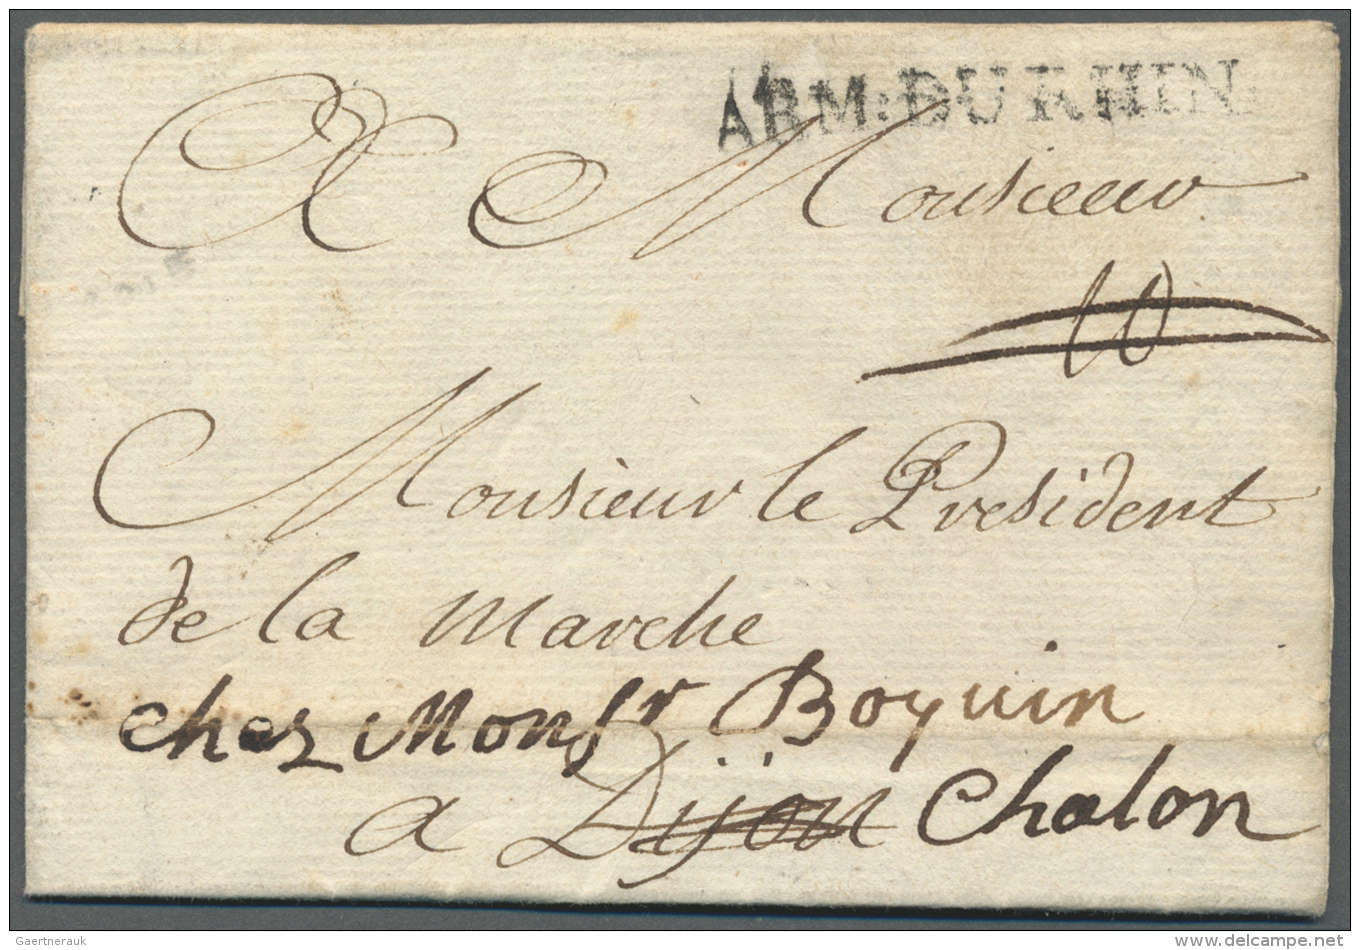 ARM: DU RHIN
A Monsieur
10
Monsieur le President
de la Marche
chez Monsr Boquin
a Dijon Chalon
Gaertnerauk
www.delcampe.net